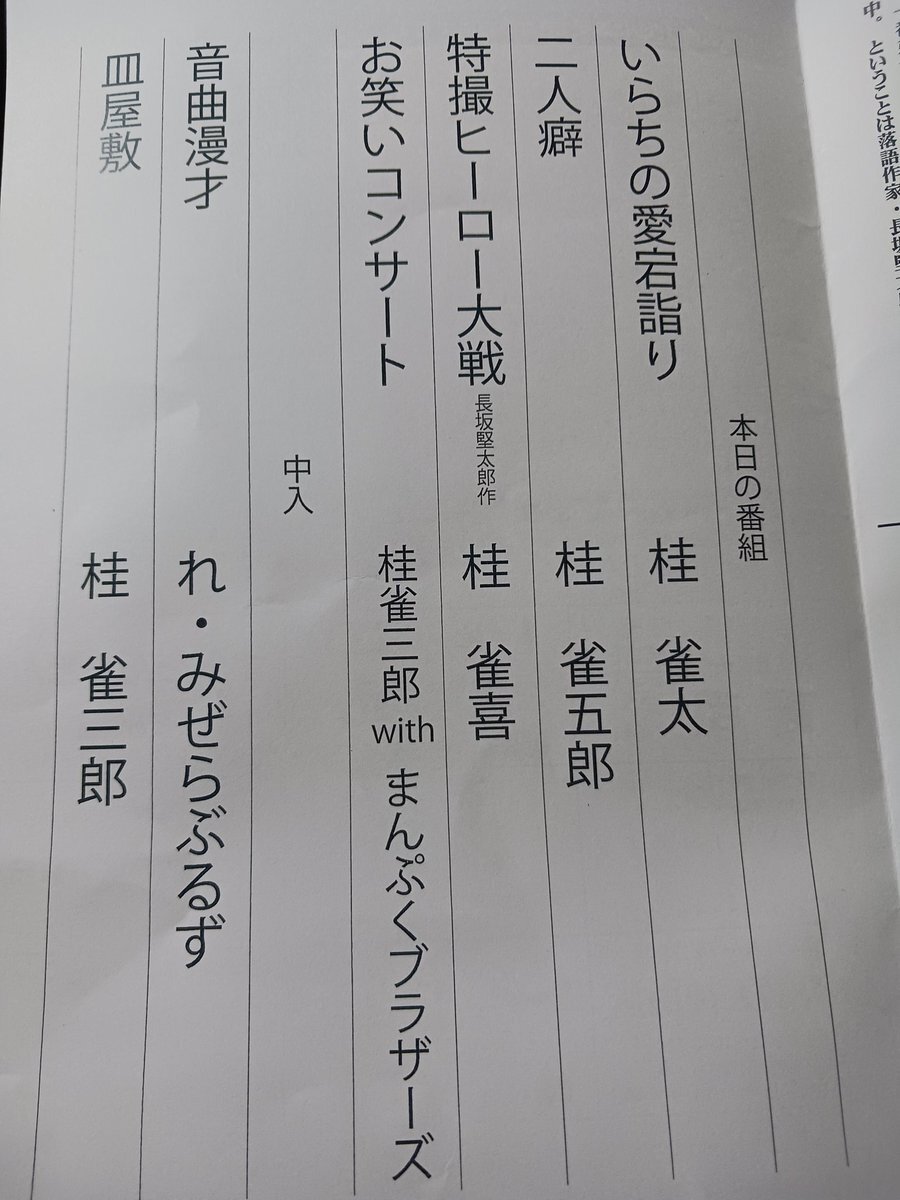 中。ということは落語作家・長坂堅
本日の番組
いらちの愛宕詣り 桂 雀太
二人癖 桂 雀五郎
特撮ヒーロー大戦 長坂堅太郎作 桂 雀喜
お笑いコンサート 桂雀三郎 with まんぷくブラザーズ
中入
音曲漫才 れ・みぜらぶるず
皿屋敷 桂 雀三郎